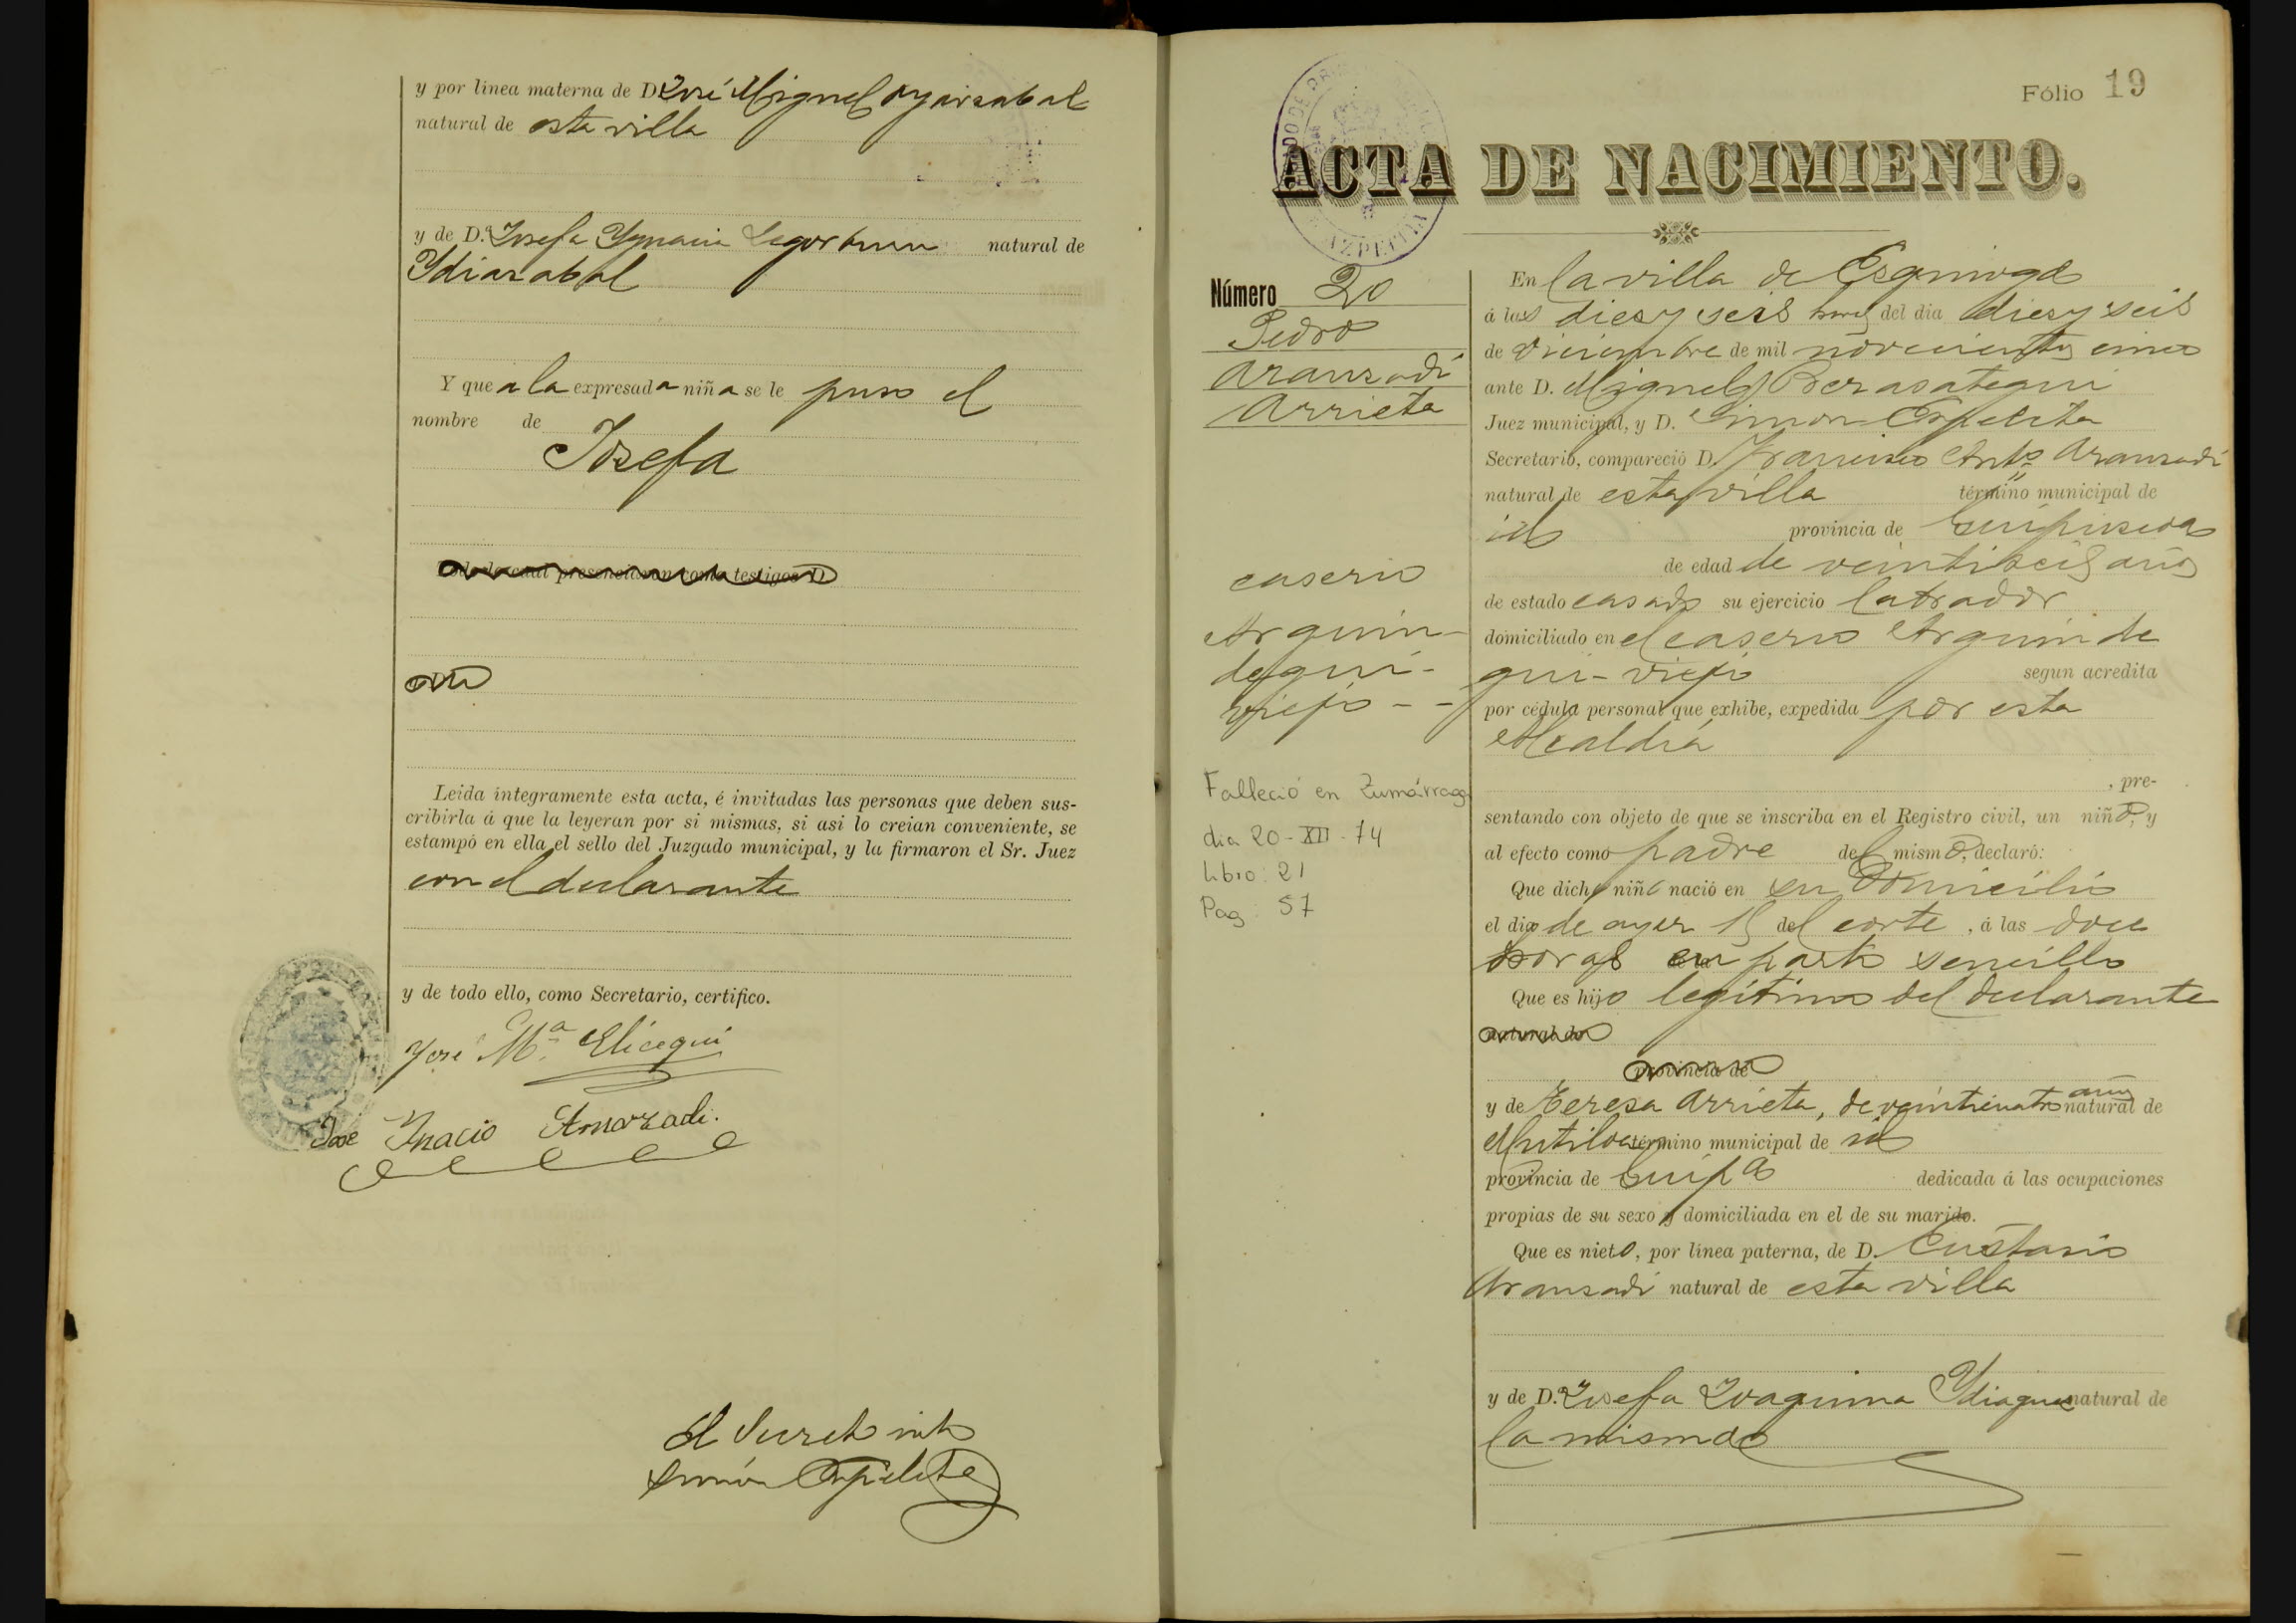 y por linea materna de D. José Miguel Oyarzabal
natural de esta villa
y de D.ª Josefa Ygnacia Legorburu natural de
Ydiazabal
Y que a la expresada niña se le puso el
nombre de
Josefa
Leida íntegramente esta acta, é invitadas las personas que deben sus-
cribirla á que la leyeran por si mismas, si asi lo creian conveniente, se
estampó en ella el sello del Juzgado municipal, y la firmaron el Sr. Juez
con el declarante
y de todo ello, como Secretario, certifico.
José M.ª Elicegui
Jose Ynacio
El Secretario
Simón Ezpeleta
Fólio 19
ACTA DE NACIMIENTO.
AZPEITIA
Número 20
Pedro
Aranzadi
Arrieta
caserio
Arguin-
degui-
viejo - -
Falleció en Zumárraga
dia 20-XII-74
Libro: 21
Pag: 57
En la villa de Ezquioga
á las diez y seis horas del dia diez y seis
de Diciembre de mil novecientos cinco
ante D. Miguel Berasategui
Juez municipal, y D. Simon Ezpeleta
Secretario, compareció D. Francisco Ant.º Aranzadi
natural de esta villa término municipal de
id provincia de Guipuzcoa
de edad de veintiseis años
de estado casado su ejercicio labrador
domiciliado en el caserio Arguinde
gui-viejo segun acredita
por cédula personal que exhibe, expedida por esta
Alcaldia
, pre-
sentando con objeto de que se inscriba en el Registro civil, un niño, y
al efecto como padre del mismo, declaró:
Que dicho niño nació en su domicilio
el dia de ayer 15 del corte, á las doce
horas en parto sencillo
Que es hijo legítimo del declarante
natural de
provincia de
y de Teresa Arrieta, de veinticuatro años natural de
Mutiloa término municipal de id
provincia de Guip.ª dedicada á las ocupaciones
propias de su sexo y domiciliada en el de su marido.
Que es nieto, por línea paterna, de D. Eustasio
Aranzadi natural de esta villa
y de D.ª Josefa Joaquina Ydiaquez natural de
la misma